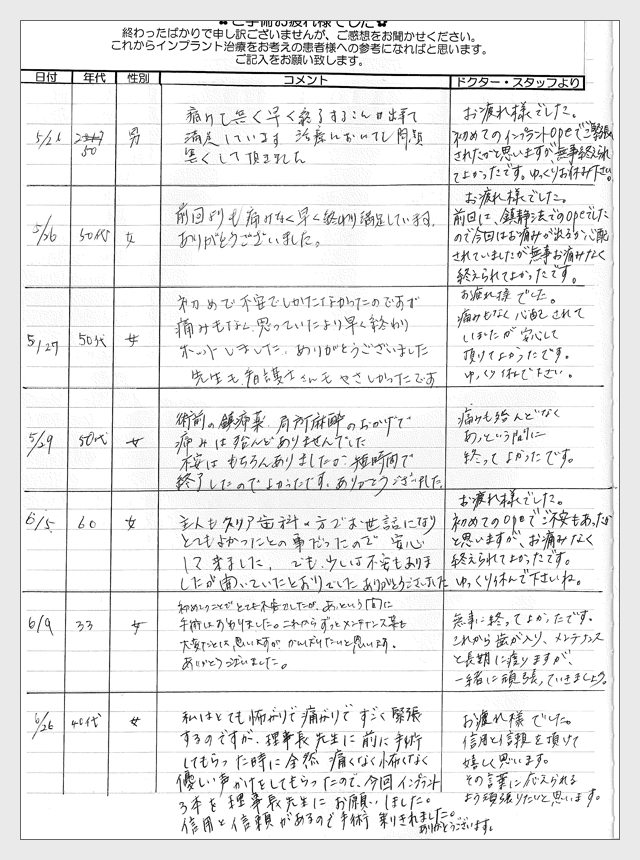 ご手術お疲れ様でした
終わったばかりで申し訳ございませんが、ご感想をお聞かせください。
これからインプラント治療をお考えの患者様への参考になればと思います。
ご記入をお願い致します。
日付 年代 性別 コメント ドクター・スタッフより
50 男
痛みも無く早く終了することが出来て
満足しています 治療においても
お疲れ様でした。
初めてのインプラントopeでご緊張
されたかと思いますが、無事終えられ
てよかったです。ゆっくりお休み下さい。
5/26 50代 女
前回よりも痛みなく早く終わり満足しています。
ありがとうございました。
お疲れ様でした。
前回は、鎮静法でのopeでした
ので今回はお痛みが出るか心配
されていましたが無事お痛みなく
終えられてよかったです。
5/27 50代 女
初めで不安でしかたなかったのですが
痛みもなく、思っていたより早く終わり
ホットしました。ありがとうございました
先生も看護士さんもやさしかったです
お疲れ様でした。
痛みもなく心配されて
いましたが安心して
頂けてよかったです。
ゆっくり休んで下さい。
5/29 50代 女
術前の鎮痛薬、局所麻酔のおかげで
痛みは殆んどありませんでした
不安はもちろんありましたが、短時間で
終了したのでよかったです。ありがとうございました。
痛みも殆んどなく
あっという間に
終ってよかったです。
6/5 60 女
主人もクリア歯科の方でお世話になり
とてもよかったとの事だったので 安心
して来ました。 でも、少しは不安もありま
したが聞いていたとおりでした ありがとうございました
お疲れ様でした。
初めてのopeでご不安もあったか
と思いますが、お痛みなく
終えられてよかったです。
ゆっくり休んで下さいね。
6/9 33 女
初めてのことがとても不安でしたが、あっという間に
手術はおわりました。これからずっとメンテナンス等も
大変だとは思いますが がんばりたいと思います。
ありがとうございました。
無事に終ってよかったです。
これから歯が入り、メンテナンス
と長期に渡りますが、
一緒に頑張っていきましょう。
6/26 40代 女
私はとても怖がりで痛がりで すごく緊張
するのですが、理事長先生に前に手術
してもらった時に全然 痛くなく怖くなく
優しい声かけをしてもらったので、今回インプラント
3本を理事長先生にお願いしました。
信用と信頼があるので手術 来りきれました。
ありがとうございます。
お疲れ様でした。
信用と信頼を頂けて
嬉しく思います。
その言葉に応えられる
よう頑張りたいと思います。